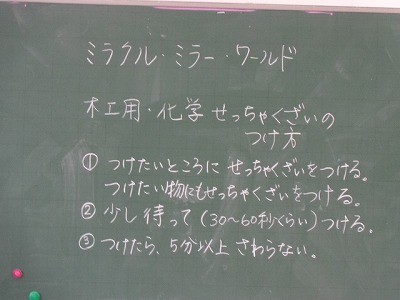 ミラクル・ミラー・ワールド
木工用・化学せっちゃくざいの
つけ方
① つけたいところに せっちゃくざいをつける。
つけたい物にもせっちゃくざいをつける。
② 少し待って(30〜60秒くらい)つける。
③ つけたら、5分以上 さわらない。